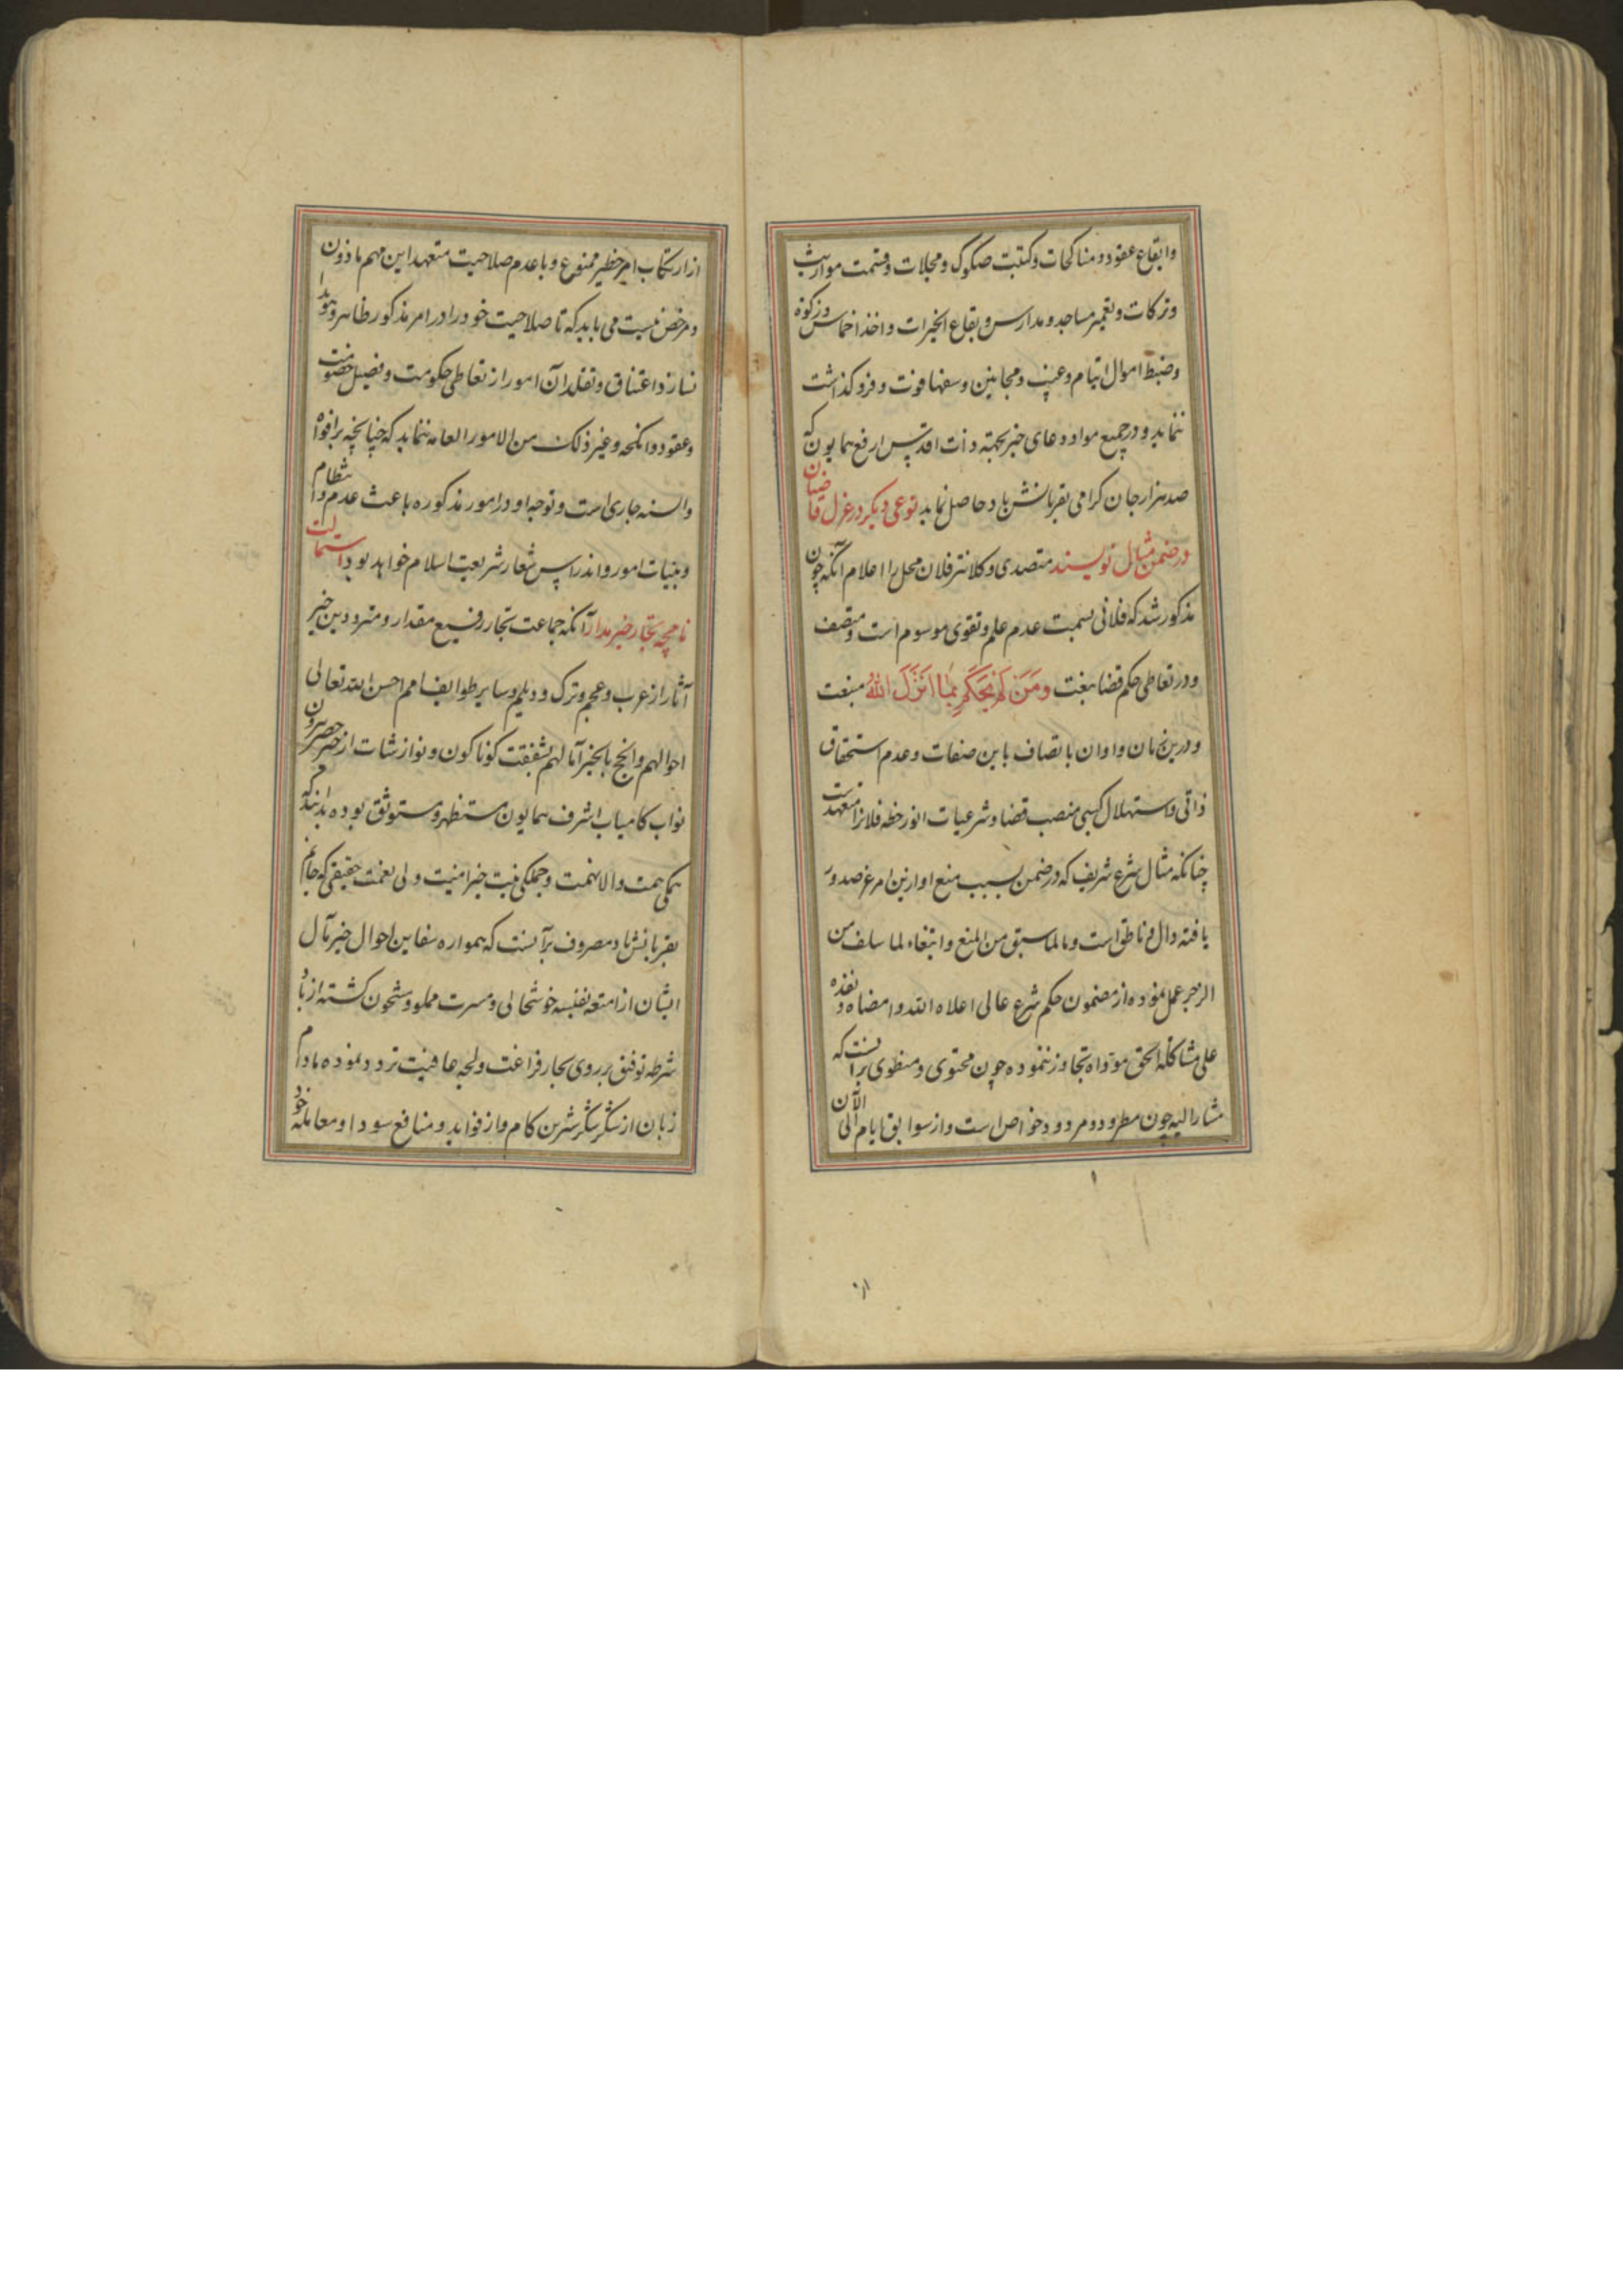 وایقاع عقود و مناکحات و کتبت صکوک و سجلات و قسمت مواریث
و ترکات و تعمیر مساجد و مدارس و بقاع الخیرات و اخذ اخماس و زکوة
وضبط اموال ایتام و غیب و مجانین و سفها فوت و فرو کذاشت
ننماید و در جمیع مواد دعای خیر بجهته ذات اقدس ارفع همایون که
صد هزار جان کرامی بقربانش باد حاصل نماید نوعی دیکر در عزل قاضیان
در ضمن مثال نویسند متصدی و کلانتر فلان محل را اعلام آنکه چون
مذکور شد که فلانی بسمت عدم علم و تقوی موسوم است و متصف
و در تعاطی حکم قضا بنعت ومن لم یحکم بما انزل الله منعت
و درین زمان و اوان باتصاف باین صفات و عدم استحقاق
ذاتی و استهلال کسبی منصب قضا و شرعیات انور خطه فلانرا متعهدست
چنانکه مثال شرع شریف که در ضمن بسبب منع او ازین امر عز صدور
یافته دال و ناطق است و مالما سبق من المنع و ابتغاء لما سلف من
الزجر عمل نموده از مضمون حکم شرع عالی اعلاه الله و امضاه و نفذه
علی مشاکلة الحق مؤداه تجاوز ننموده چون محتوی و منطوی برآنست که
مشارالیه چون مطرود و مردود خواص است و از سوابق ایام الی الآن
از
از ارتکاب امر خطیر ممنوع و با عدم صلاحیت متعهد این مهم ماذون
و مرخص نیست می باید که تا صلاحیت خود را در امر مذکور ظاهر و هویدا
نسازد اعتناق و تقلد آن امور از تعاطی حکومت و فصیل خصومت
و عقود و انکحه و غیر ذلک من الامور العامه ننماید که چنانچه بر افواه
و السنه جاری است و توجه او در امور مذکوره باعث عدم انتظام
و بنیات امور و اندراس شعار شریعت اسلام خواهد بود استمالت
نامچه تجار خیر مدار آنکه جماعت تجار رفیع مقدار و مترددین خیر
آثار از عرب و عجم و ترک و دیلم و سایر طوایف امم احسن الله تعالی
احوالهم و انجح بالخیر آمالهم بشفقت کوناکون و نوازشات از حصر بیرون
نواب کامیاب اشرف همایون مستظهر و مستوثق بوده بدانند که
همکی همت والا نهمت و جملکی نیت خیر امنیت ولی نعمت حقیقی که جانم
بقربانش باد مصروف بر آنست که همواره سفاین احوال خیر مآل
ایشان از امتعه نفیسه خوشحالی و مسرت مملو و مشحون کشته از باد
شرطه توفیق بر روی بحار فراغت و لجه عافیت تردد نموده مادام
زبان از شکر شکر شیرین کام و از فواید و منافع سودا و معامله خود